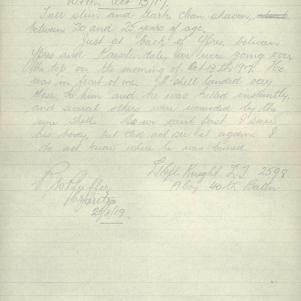 Tall slim and dark clean shaven,
between 20 and 25 years of age.
Just at back of Ypres between
Ypres and Passchendale, we were going over
the top on the morning of Oct 12th 1917. He
was in front of me. A shell landed very
close to him and he was killed instantly,
and several others were wounded by the
same shell. As we went past I saw
his body, but did not see it again. I
do not know where he was buried.
L/Cpl Knight. F.J 2598
A Coy 40th Battn
25/2/19.